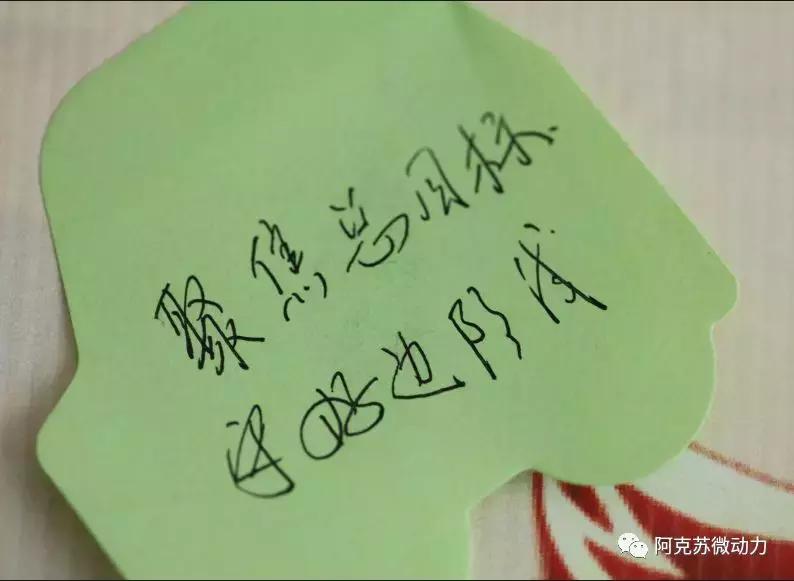 聚焦总目标
边防
阿克苏微动力